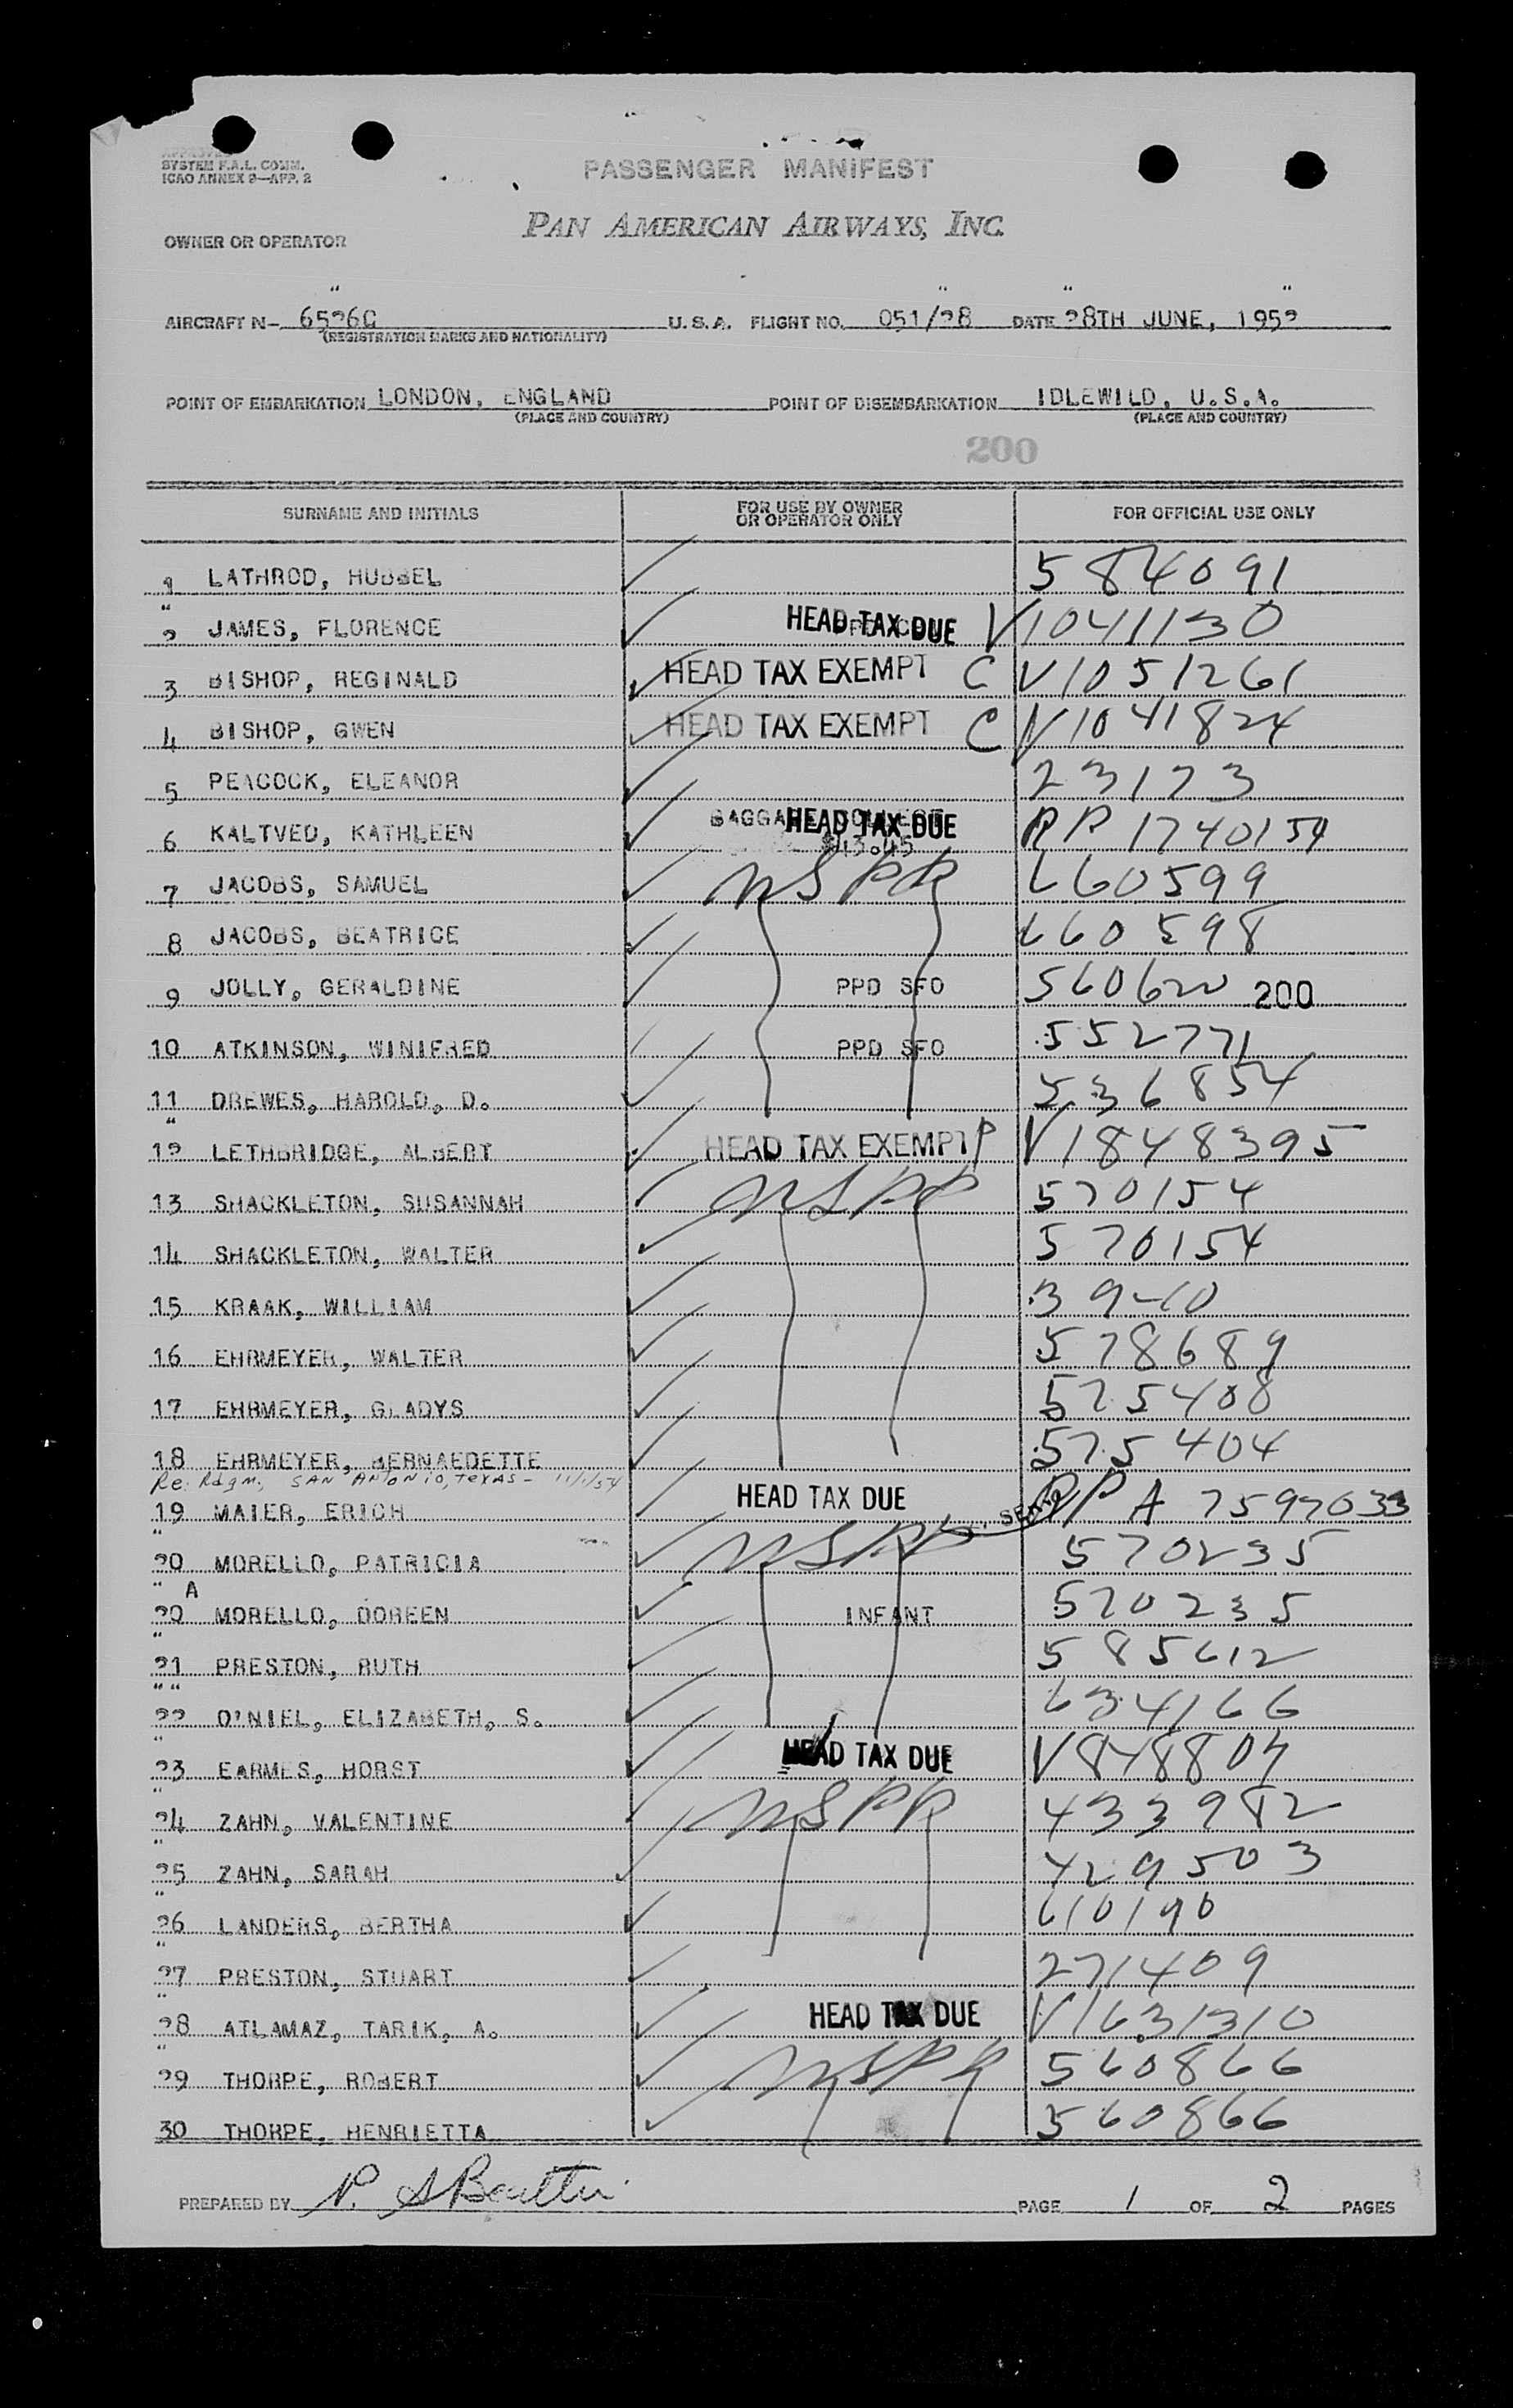 SYSTEM F.A.L. COMM.
ICAO ANNEX 9—APP. 2
PASSENGER MANIFEST
PAN AMERICAN AIRWAYS, INC.
OWNER OR OPERATOR
AIRCRAFT N- 6526C U.S.A. FLIGHT NO. 051/28 DATE 28TH JUNE, 1952
(REGISTRATION MARKS AND NATIONALITY)
POINT OF EMBARKATION LONDON, ENGLAND POINT OF DISEMBARKATION IDLEWILD, U.S.A.
(PLACE AND COUNTRY) (PLACE AND COUNTRY)
200
SURNAME AND INITIALS FOR USE BY OWNER OR OPERATOR ONLY FOR OFFICIAL USE ONLY
1 LATHROD, HUBBEL 584091
2 JAMES, FLORENCE HEAD TAX DUE V1041130
3 BISHOP, REGINALD HEAD TAX EXEMPT C V1051261
4 BISHOP, GWEN HEAD TAX EXEMPT C V1041824
5 PEACOCK, ELEANOR 23173
6 KALTVED, KATHLEEN HEAD TAX DUE RP 1740154
$13.45
7 JACOBS, SAMUEL USPP 660599
8 JACOBS, BEATRICE 660598
9 JOLLY, GERALDINE PPD SFO 560620 200
10 ATKINSON, WINIFRED PPD SFO 552771
11 DREWES, HAROLD, D. 536854
12 LETHBRIDGE, ALBERT HEAD TAX EXEMPT P V1848395
13 SHACKLETON, SUSANNAH USPP 570154
14 SHACKLETON, WALTER 570154
15 KRAAK, WILLIAM
16 EHRMEYER, WALTER 578689
17 EHRMEYER, GLADYS 575408
18 EHRMEYER, BERNAEDETTE 575404
Re: Rdgm, SAN ANTONIO, TEXAS - 11/1/54
19 MAIER, ERICH HEAD TAX DUE RP A 7597033
20 MORELLO, PATRICIA USPP 570235
20 A MORELLO, DOREEN INFANT 570235
21 PRESTON, RUTH 585612
22 O'NIEL, ELIZABETH, S. 634166
23 EARMES, HORST HEAD TAX DUE V848804
24 ZAHN, VALENTINE USPP 433982
25 ZAHN, SARAH 429503
26 LANDERS, BERTHA 610190
27 PRESTON, STUART 271409
28 ATLAMAZ, TARIK, A. HEAD TAX DUE V1631310
29 THORPE, ROBERT USPP 560866
30 THORPE, HENRIETTA 560866
PREPARED BY PAGE 1 OF 2 PAGES